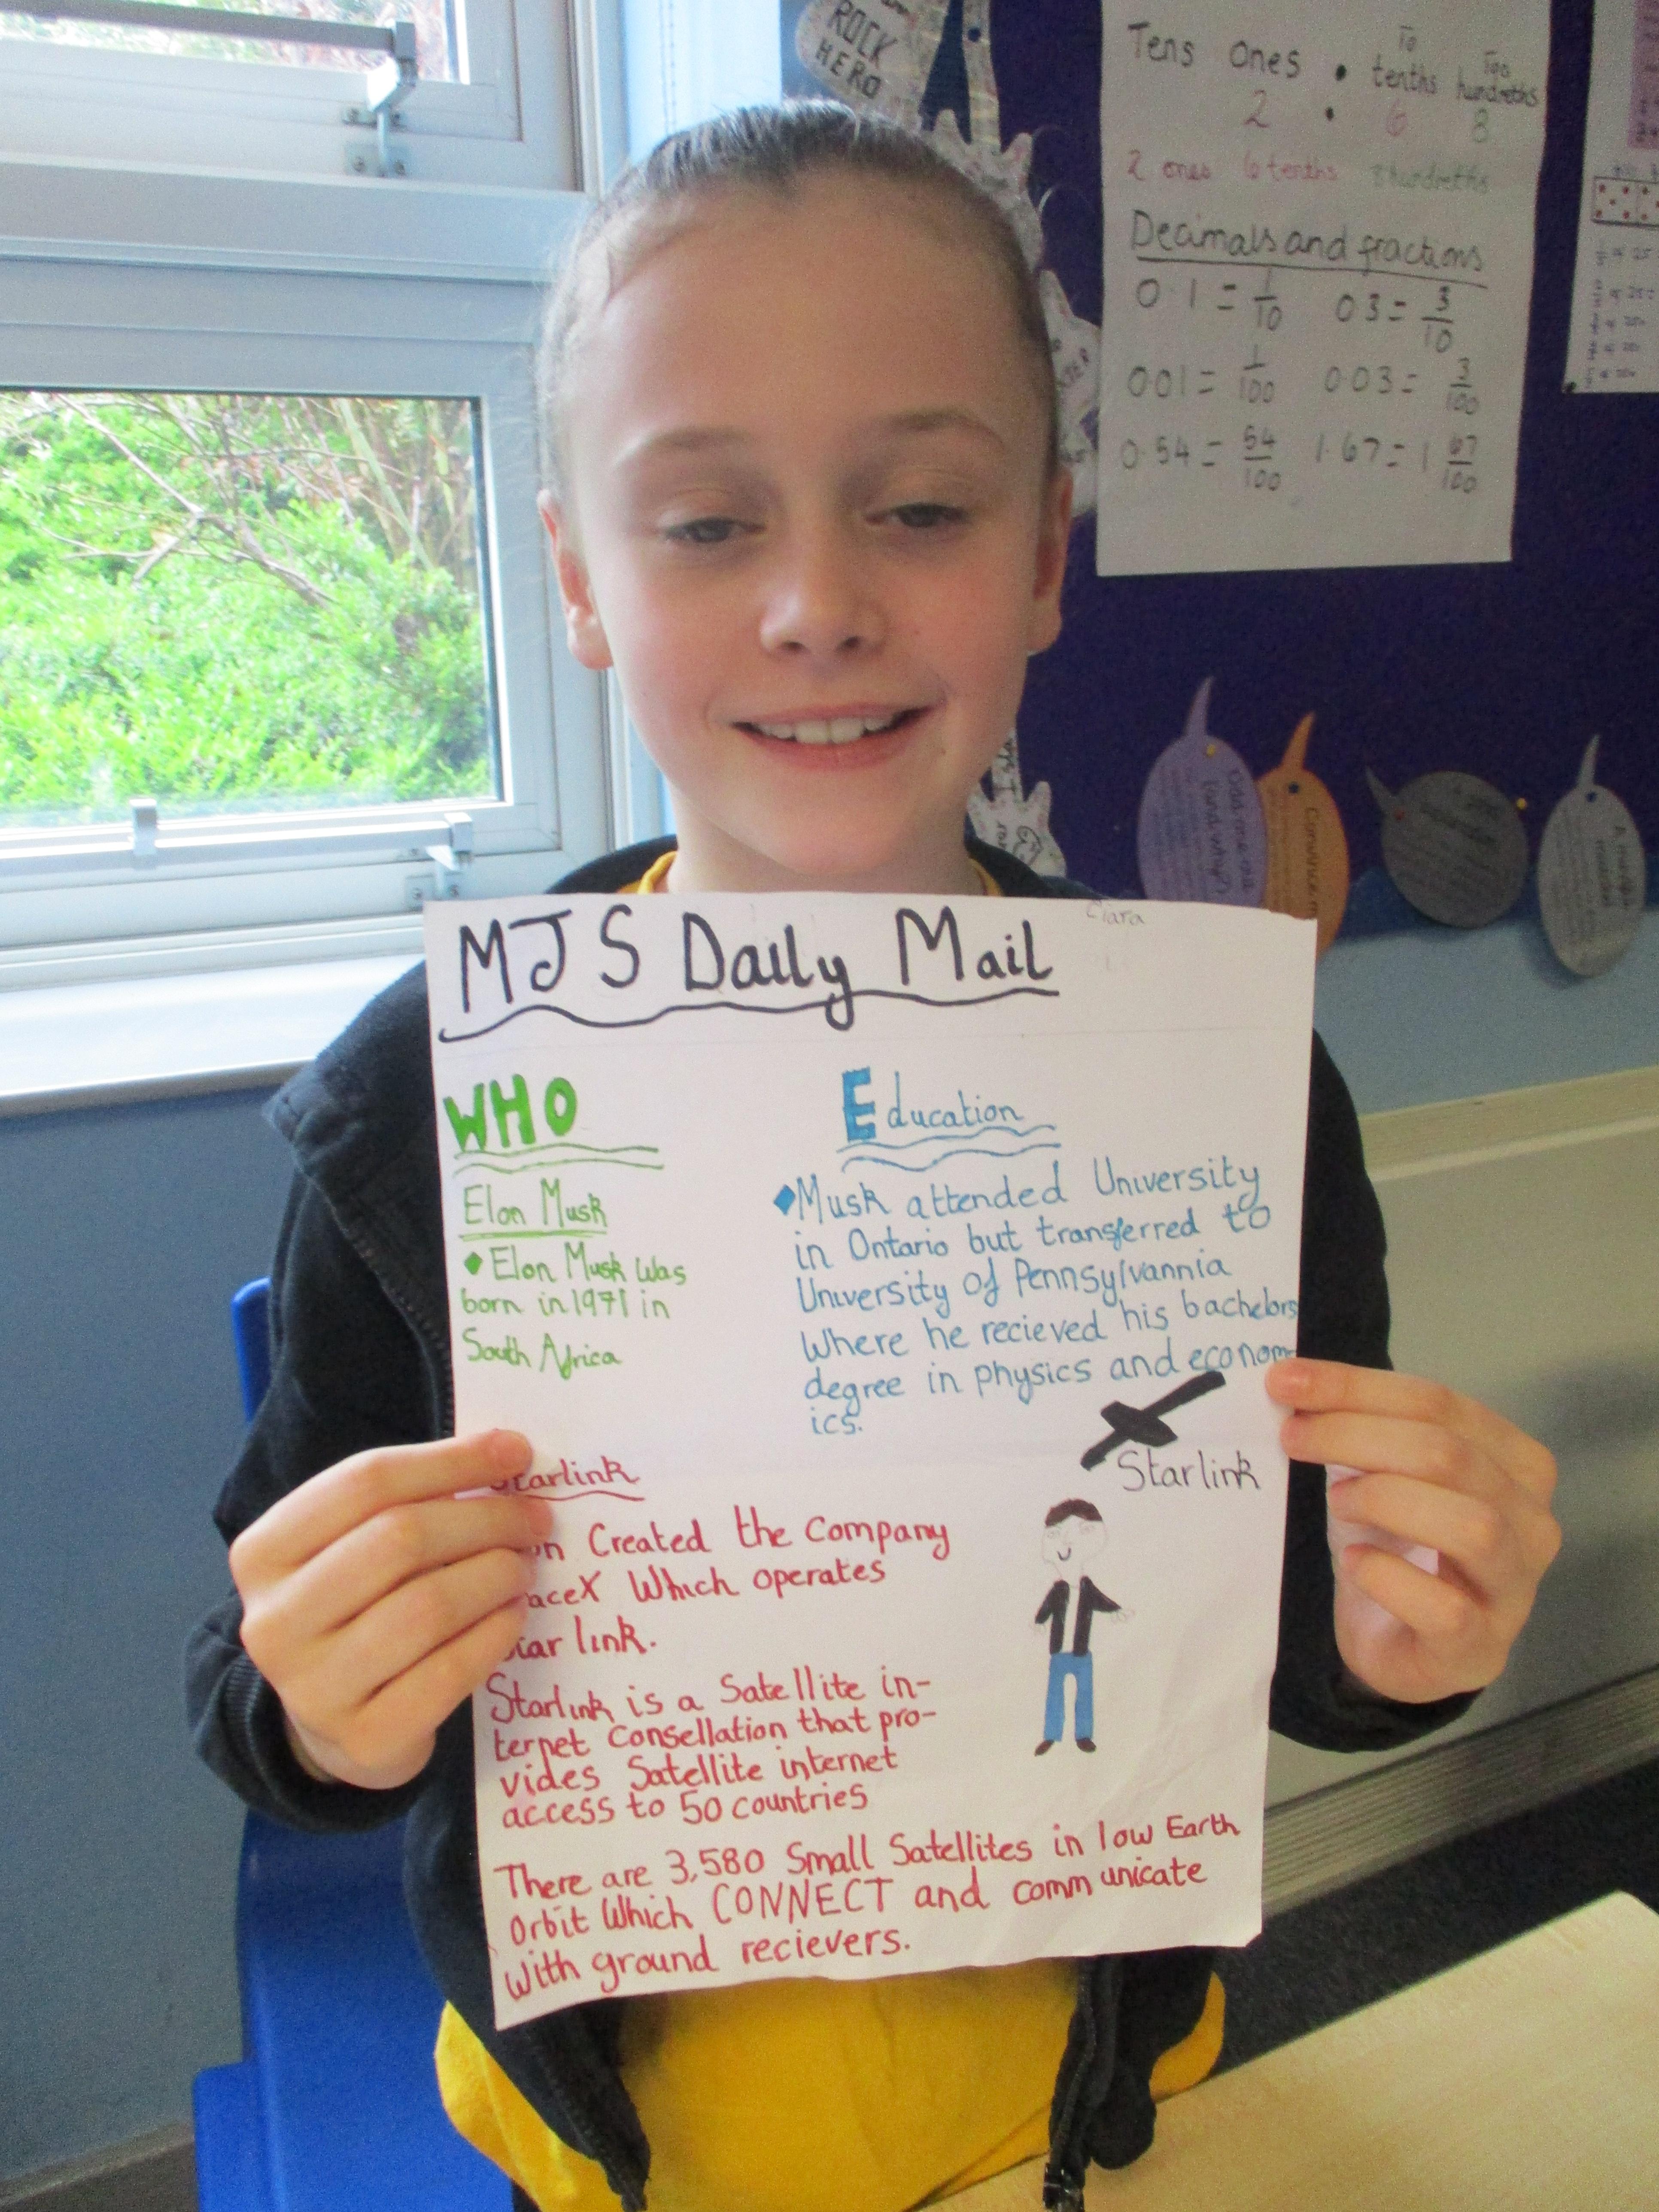 ROCK
HERO
Tens Ones . tenths hundreths
2 . 6 8
2 ones 6 tenths 8 hundreths
Decimals and fractions
0.1 = 1/10 03 = 3/10
001 = 1/100 0.03 = 3/100
0.54 = 54/100 1.67 = 1 67/100
Ciara
MJS Daily Mail
WHO
Elon Musk
Elon Musk was
born in 1971 in
South Africa
Education
Musk attended University
in Ontario but transferred to
University of Pennsylvannia
Where he recieved his bachelors
degree in physics and econom-
ics.
Starlink
tarlink
on Created the Company
aceX Which operates
tar link.
Starlink is a Satellite in-
ternet Consellation that pro-
vides Satellite internet
access to 50 countries
There are 3,580 Small Satellites in low Earth
Orbit Which CONNECT and communicate
with ground recievers.